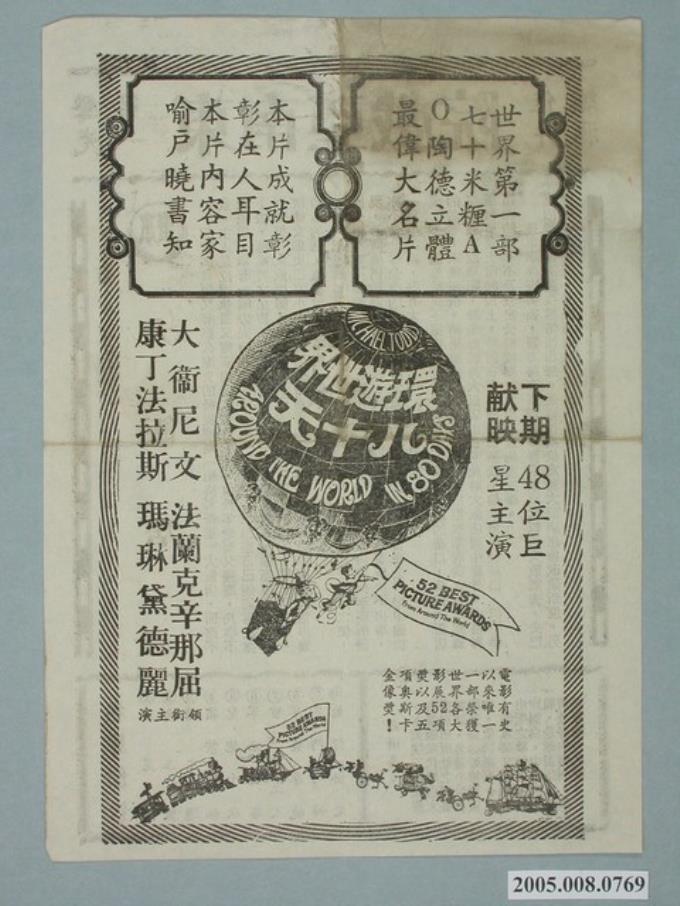 世界第一部
七十米糎A
O陶德立體
最偉大名片
本片成就彰
彰在人耳目
本片內容家
喻戶曉書知
下期
献映
48位巨
星主演
MICHAEL TODD'S
環遊世界
八十天
AROUND THE WORLD IN 80 DAYS
大衞尼文 法蘭克辛那屈
康丁法拉斯 瑪琳黛德麗
領銜主演
52 BEST
PICTURE AWARDS
From Around The World
電影有史
以來唯一
一部榮獲
世界各大
影展52項
獎以及五
項奧斯卡
金像獎！
52 BEST
PICTURE AWARDS
From Around The World
2005.008.0769